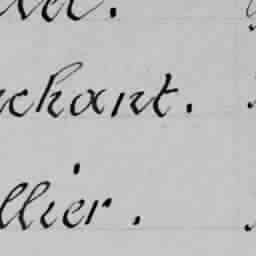 chant.
llier.